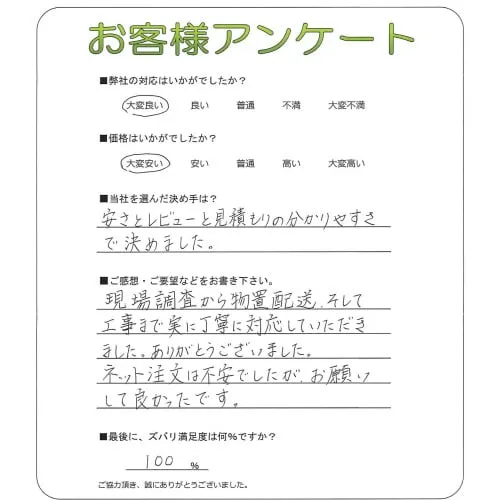 お客様アンケート
■弊社の対応はいかがでしたか？
大変良い 良い 普通 不満 大変不満
■価格はいかがでしたか？
大変安い 安い 普通 高い 大変高い
■当社を選んだ決め手は？
安さとレビューと見積もりの分かりやすさ
で決めました。
■ご感想・ご要望などをお書き下さい。
現場調査から物置配送、そして
工事まで実に丁寧に対応していただき
ました。ありがとうございました。
ネット注文は不安でしたが、お願い
して良かったです。
■最後に、ズバリ満足度は何%ですか？
100 %
ご協力頂き、誠にありがとうございました。